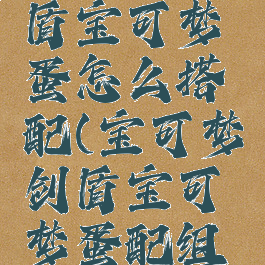 盾宝可梦
蛋怎么搭
配(宝可梦
剑盾宝可
梦蛋配组